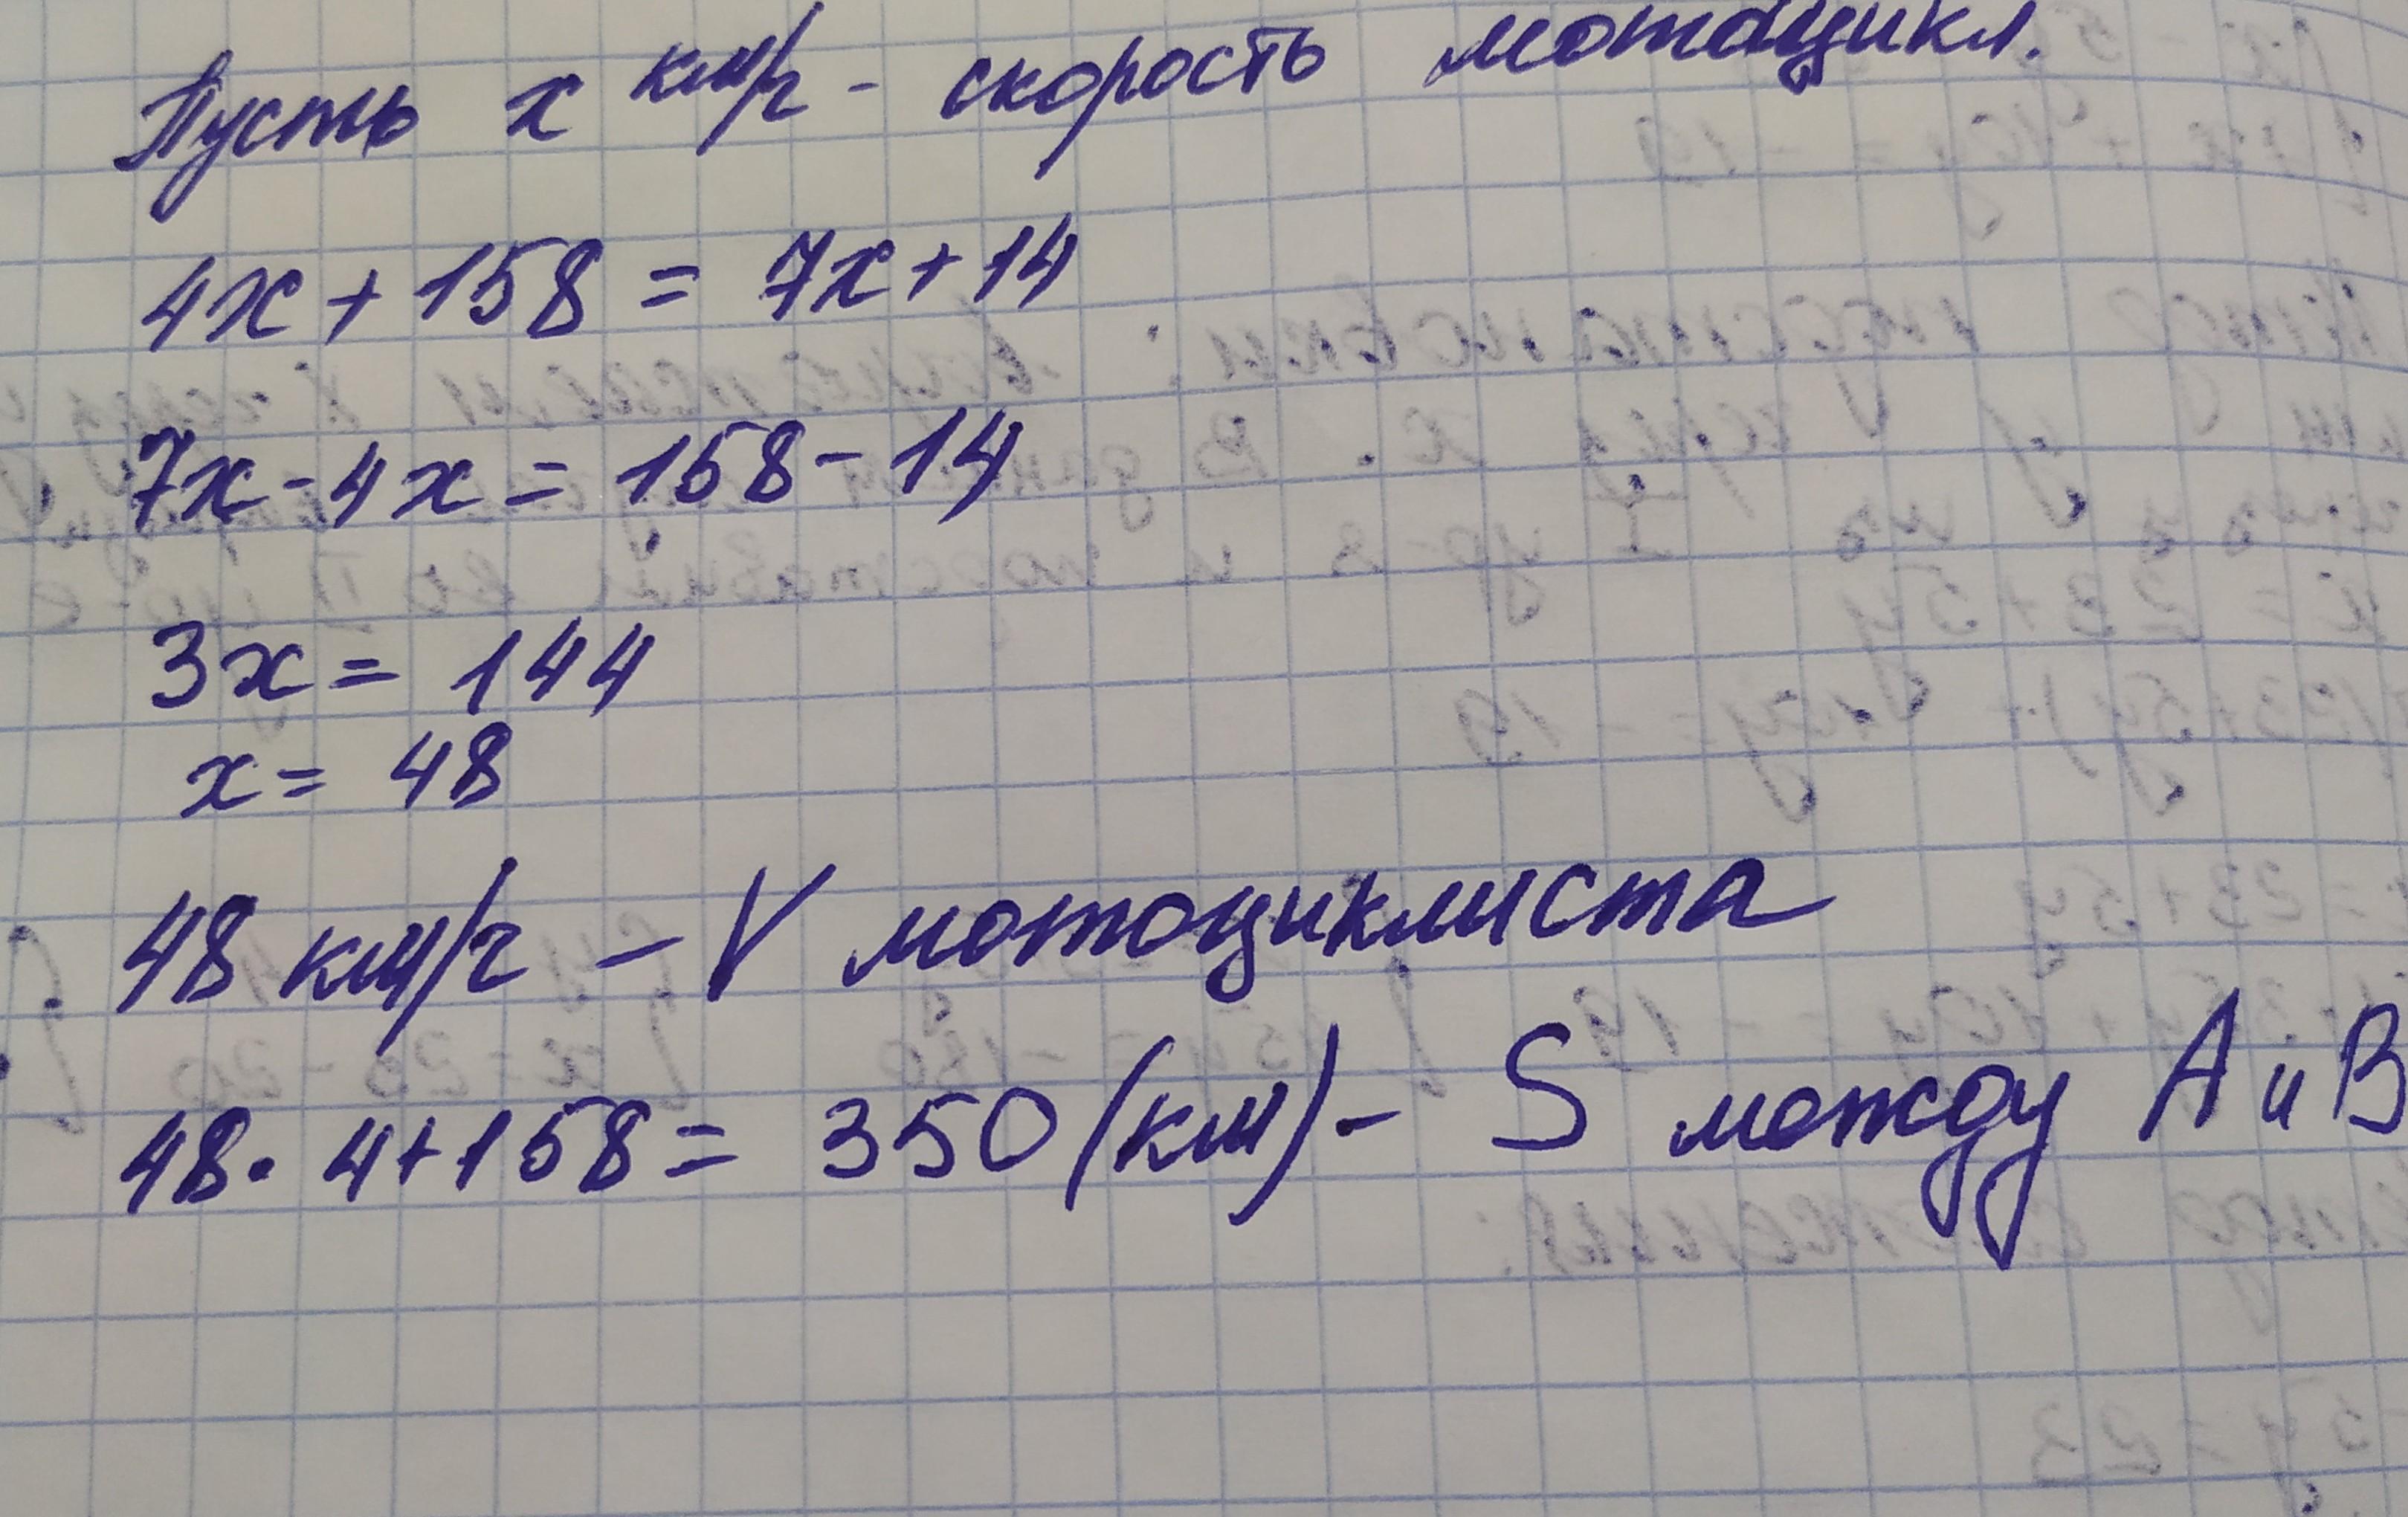 Пусть x км/ч - скорость мотоцикл.
4x + 158 = 7x + 14
7x - 4x = 158 - 14
3x = 144
x = 48
48 км/ч - V мотоциклиста
48 · 4 + 158 = 350 (км) - S между А и В